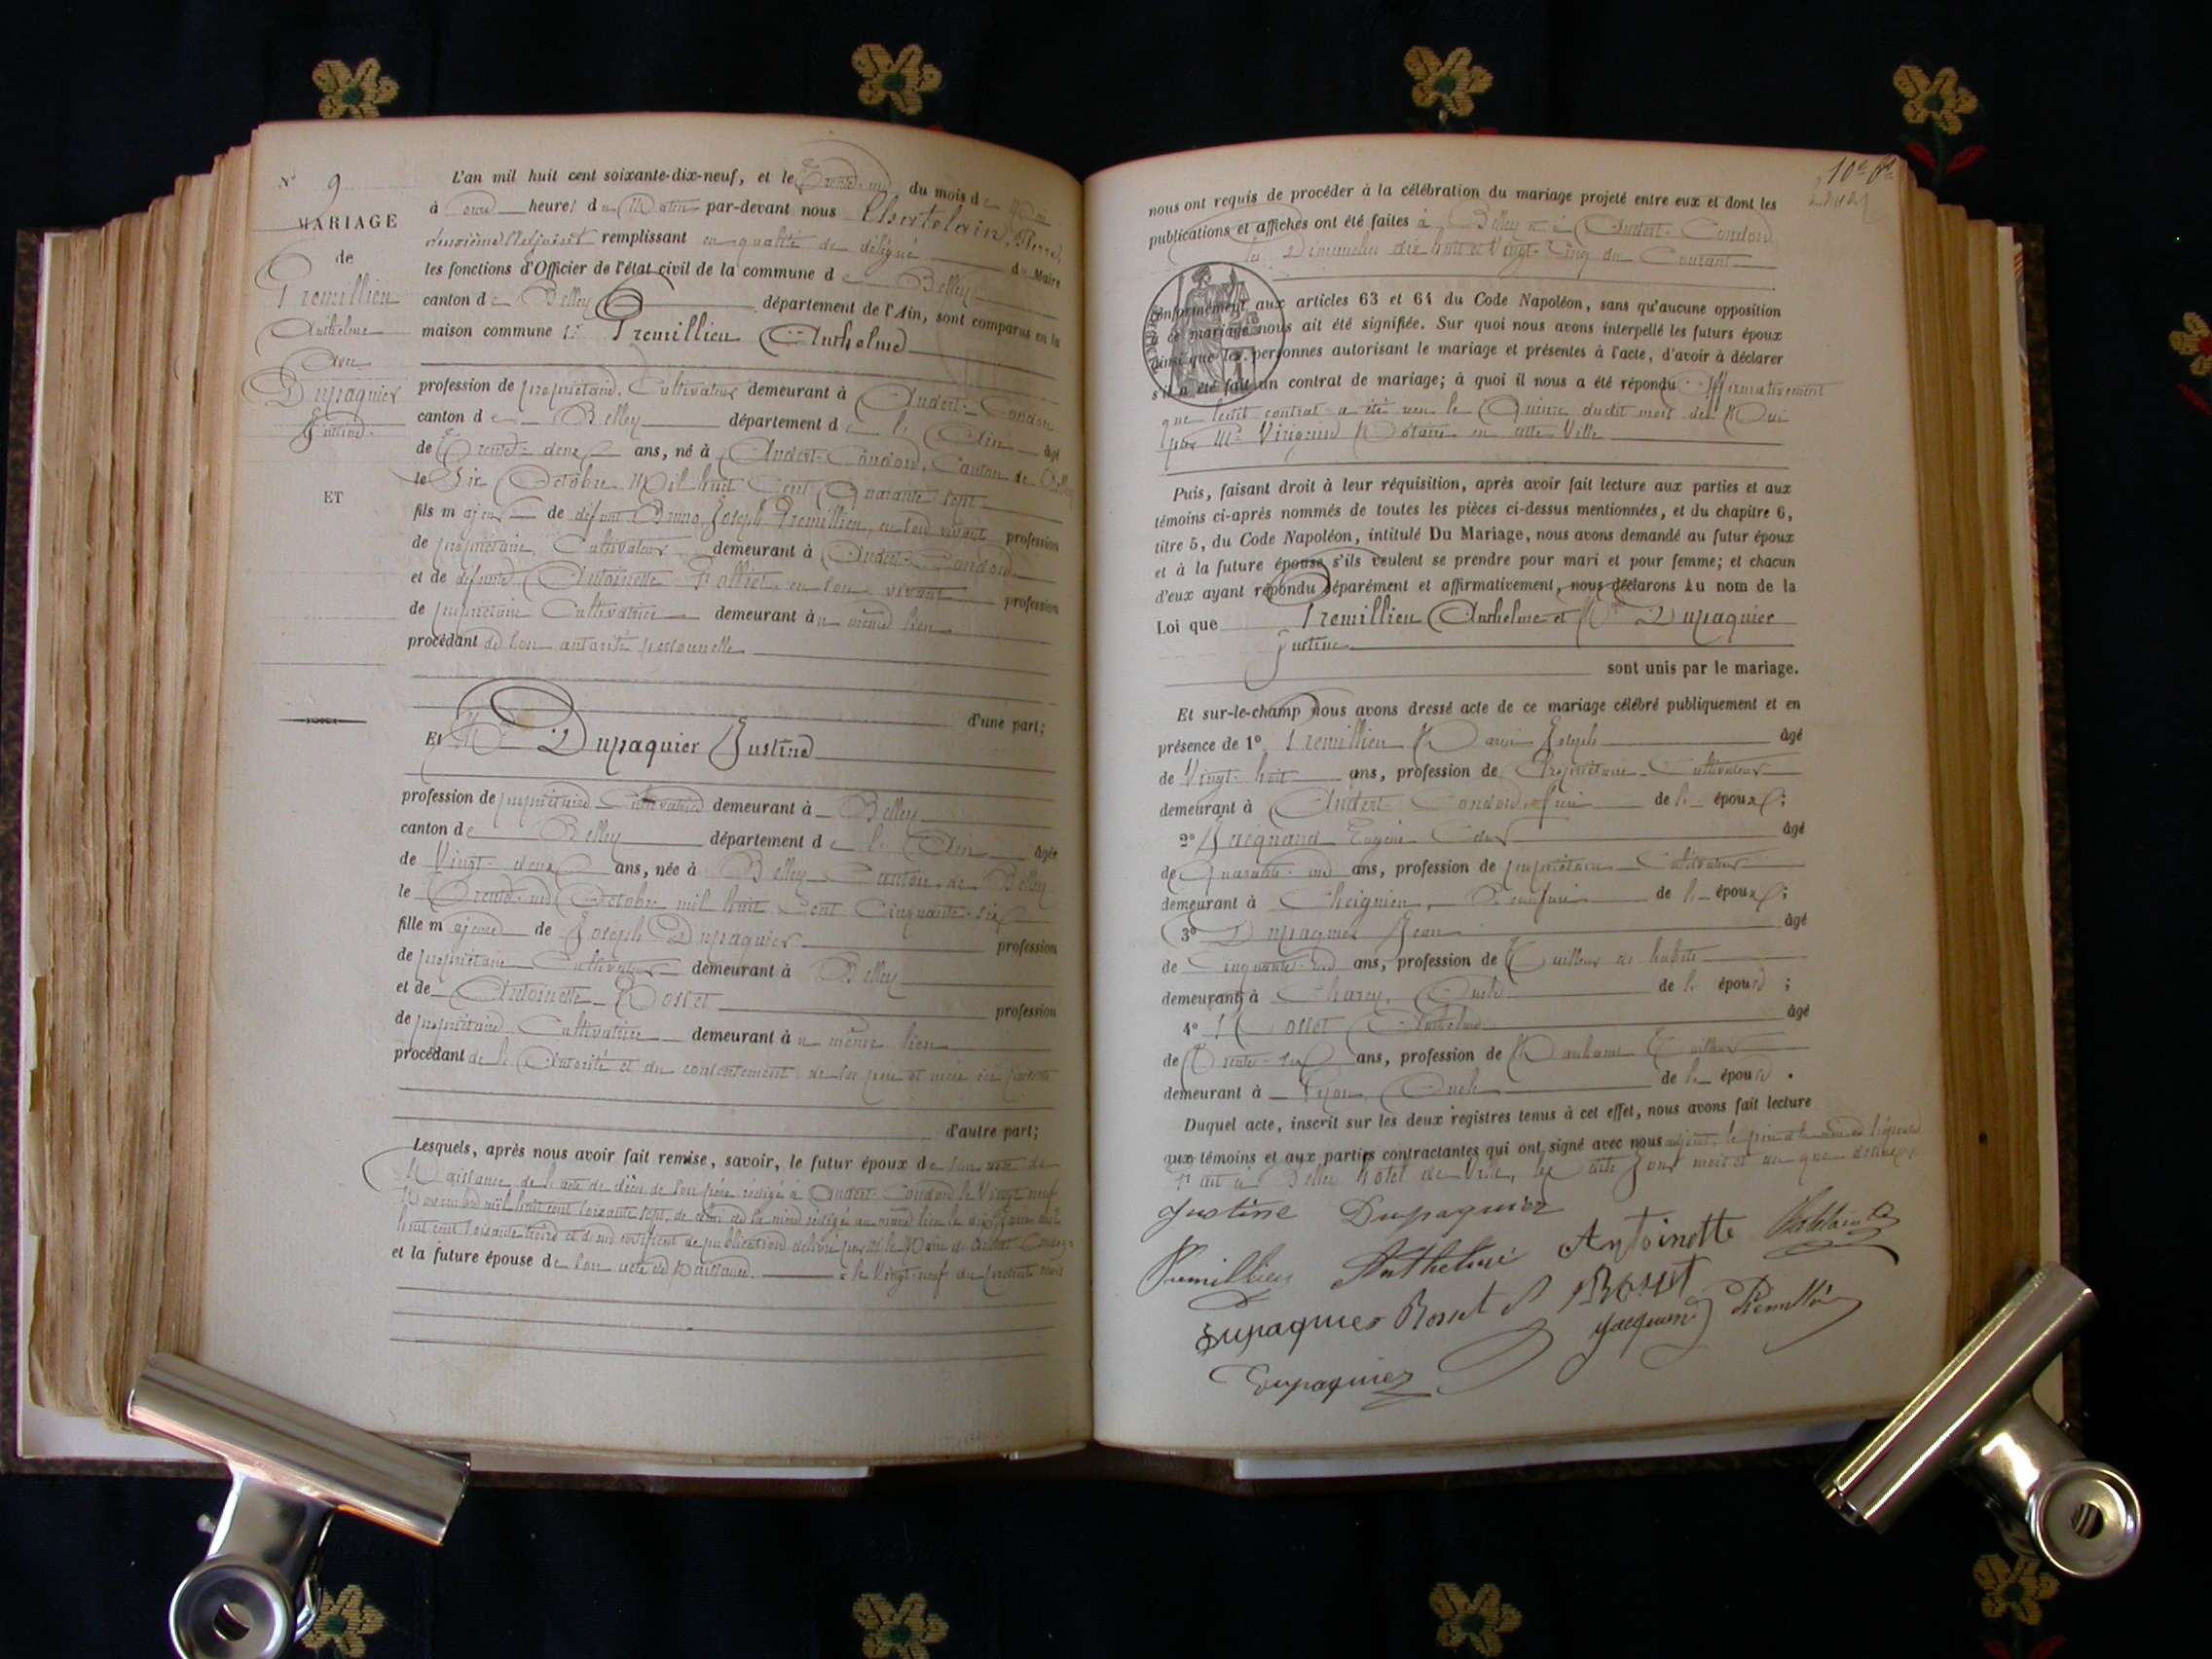 No 9
MARIAGE
de
Premillieu
Anthelme
avec
Dupaquier
Justine.
ET
L'an mil huit cent soixante-dix-neuf, et le Trente-un, du mois de Mai
à onze heures du Matin par-devant nous Chatelain, Pierre,
deuxième Adjoint remplissant en qualité de délégué du Maire
les fonctions d'Officier de l'état civil de la commune de Belley
canton de Belley département de l'Ain, sont comparus en la
maison commune Premillieu Anthelme
profession de propriétaire, Cultivateur demeurant à Andert-Condon
canton de Belley département de l'Ain âgé
de Trente-deux ans, né à Andert-Condon, Canton de Belley
le Six Octobre Mil huit Cent Quarante sept
fils majeur de défunt Bruno, Joseph Premillieu, en son vivant profession
de propriétaire, Cultivateur demeurant à Andert-Condon
et de défunte Antoinette en son vivant profession
de propriétaire Cultivatrice demeurant au même lieu
procédant de son autorité personnelle
d'une part;
Et Dupaquier Justine
profession de propriétaire Cultivatrice demeurant à Belley
canton de Belley département de l'Ain âgée
de Vingt-deux ans, née à Belley Canton de Belley
le Trente-un Octobre mil huit Cent Cinquante-six
fille majeure de Joseph Dupaquier profession
de propriétaire Cultivateur demeurant à Belley
et de Antoinette Rosset profession
de propriétaire Cultivatrice demeurant au même lieu
procédant de l'Autorité et du consentement de ses père et mère ici présents
d'autre part;
Lesquels, après nous avoir fait remise, savoir, le futur époux de son acte de
Naissance, de l'acte de décès de son père rédigé à Andert-Condon le Vingt neuf
Novembre mil huit cent soixante sept, de celui de sa mère rédigé au même lieu le mil
huit cent soixante treize et d'un certificat de publication délivré par M. le Maire de Andert-Condon
et la future épouse de son acte de Naissance. le Vingt-neuf du présent mois
10e
nous ont requis de procéder à la célébration du mariage projeté entre eux et dont les
publications et affiches ont été faites à Belley et à Andert-Condon
les Dimanches dix huit et Vingt-Cinq du Courant
conformément aux articles 63 et 64 du Code Napoléon, sans qu'aucune opposition
à ce mariage nous ait été signifiée. Sur quoi nous avons interpellé les futurs époux
ainsi que les personnes autorisant le mariage et présentes à l'acte, d'avoir à déclarer
s'il a été fait un contrat de mariage; à quoi il nous a été répondu Affirmativement
que ledit contrat a été reçu le Quinze dudit mois de Mai
par Me Notaire en cette Ville
Puis, faisant droit à leur réquisition, après avoir fait lecture aux parties et aux
témoins ci-après nommés de toutes les pièces ci-dessus mentionnées, et du chapitre 6,
titre 5, du Code Napoléon, intitulé Du Mariage, nous avons demandé au futur époux
et à la future épouse s'ils veulent se prendre pour mari et pour femme; et chacun
d'eux ayant répondu séparément et affirmativement, nous déclarons au nom de la
Loi que Premillieu Anthelme et Dupaquier
Justine
sont unis par le mariage.
Et sur-le-champ nous avons dressé acte de ce mariage célébré publiquement et en
présence de 1o Premillieu Marie Joseph âgé
de Vingt-huit ans, profession de Propriétaire-Cultivateur
demeurant à Andert-Condon, frère de l'époux;
2o Eugène âgé
de Quarante-un ans, profession de propriétaire Cultivateur
demeurant à Cheignieu, Beau frère de l'époux;
3o Dupaquier Jean âgé
de Cinquante-un ans, profession de Tailleur de habits
demeurant à Oncle de l'épouse;
4o Rosset Anthelme âgé
de Trente-six ans, profession de Marchand Tailleur
demeurant à Lyon, Oncle de l'épouse.
Duquel acte, inscrit sur les deux registres tenus à cet effet, nous avons fait lecture
aux témoins et aux parties contractantes qui ont signé avec nous adjoint, le père et la mère de l'épouse
Fait à Belley hôtel de Ville, les dits Jour mois et an que dessus
Justine Dupaquier
Premillieu Anthelme Antoinette
Dupaquier Rosset Rosset
Premillieu
Dupaquier